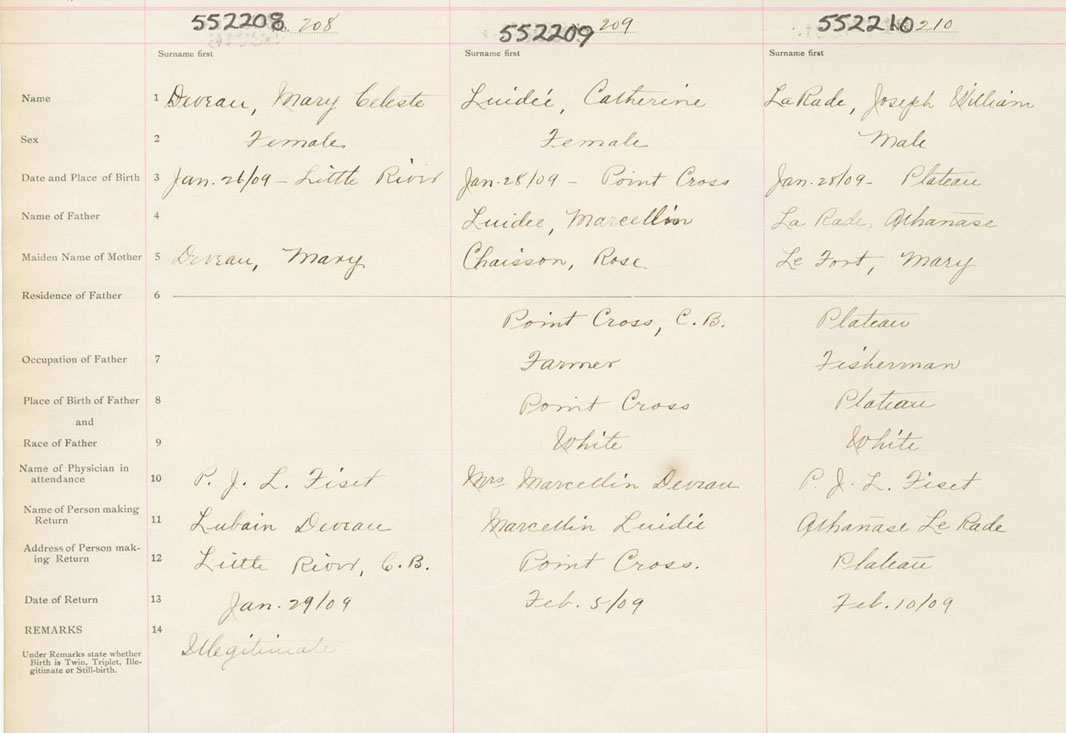 552208 208 552209 209 552210 210
Surname first Surname first Surname first
Name 1 Deveau, Mary Celeste Luidée, Catherine LaRade, Joseph William
Sex 2 Female Female Male
Date and Place of Birth 3 Jan. 26/09 - Little River Jan. 28/09 - Point Cross Jan. 28/09 - Plateau
Name of Father 4 Luidee, Marcellin La Rade, Athanase
Maiden Name of Mother 5 Deveau, Mary Chaisson, Rose Le Fort, Mary
Residence of Father 6
Point Cross, C.B. Plateau
Occupation of Father 7 Farmer Fisherman
Place of Birth of Father 8 Point Cross Plateau
and
Race of Father 9 White White
Name of Physician in
attendance 10 P. J. L. Fiset Mrs Marcellin Deveau P. J. L. Fiset
Name of Person making
Return 11 Lubain Deveau Marcellin Luidée Athanase Le Rade
Address of Person mak-
ing Return 12 Little River, C.B. Point Cross. Plateau
Date of Return 13 Jan. 29/09 Feb. 5/09 Feb. 10/09
REMARKS 14
Illegitimate
Under Remarks state whether
Birth is Twin, Triplet, Ille-
gitimate or Still-birth.